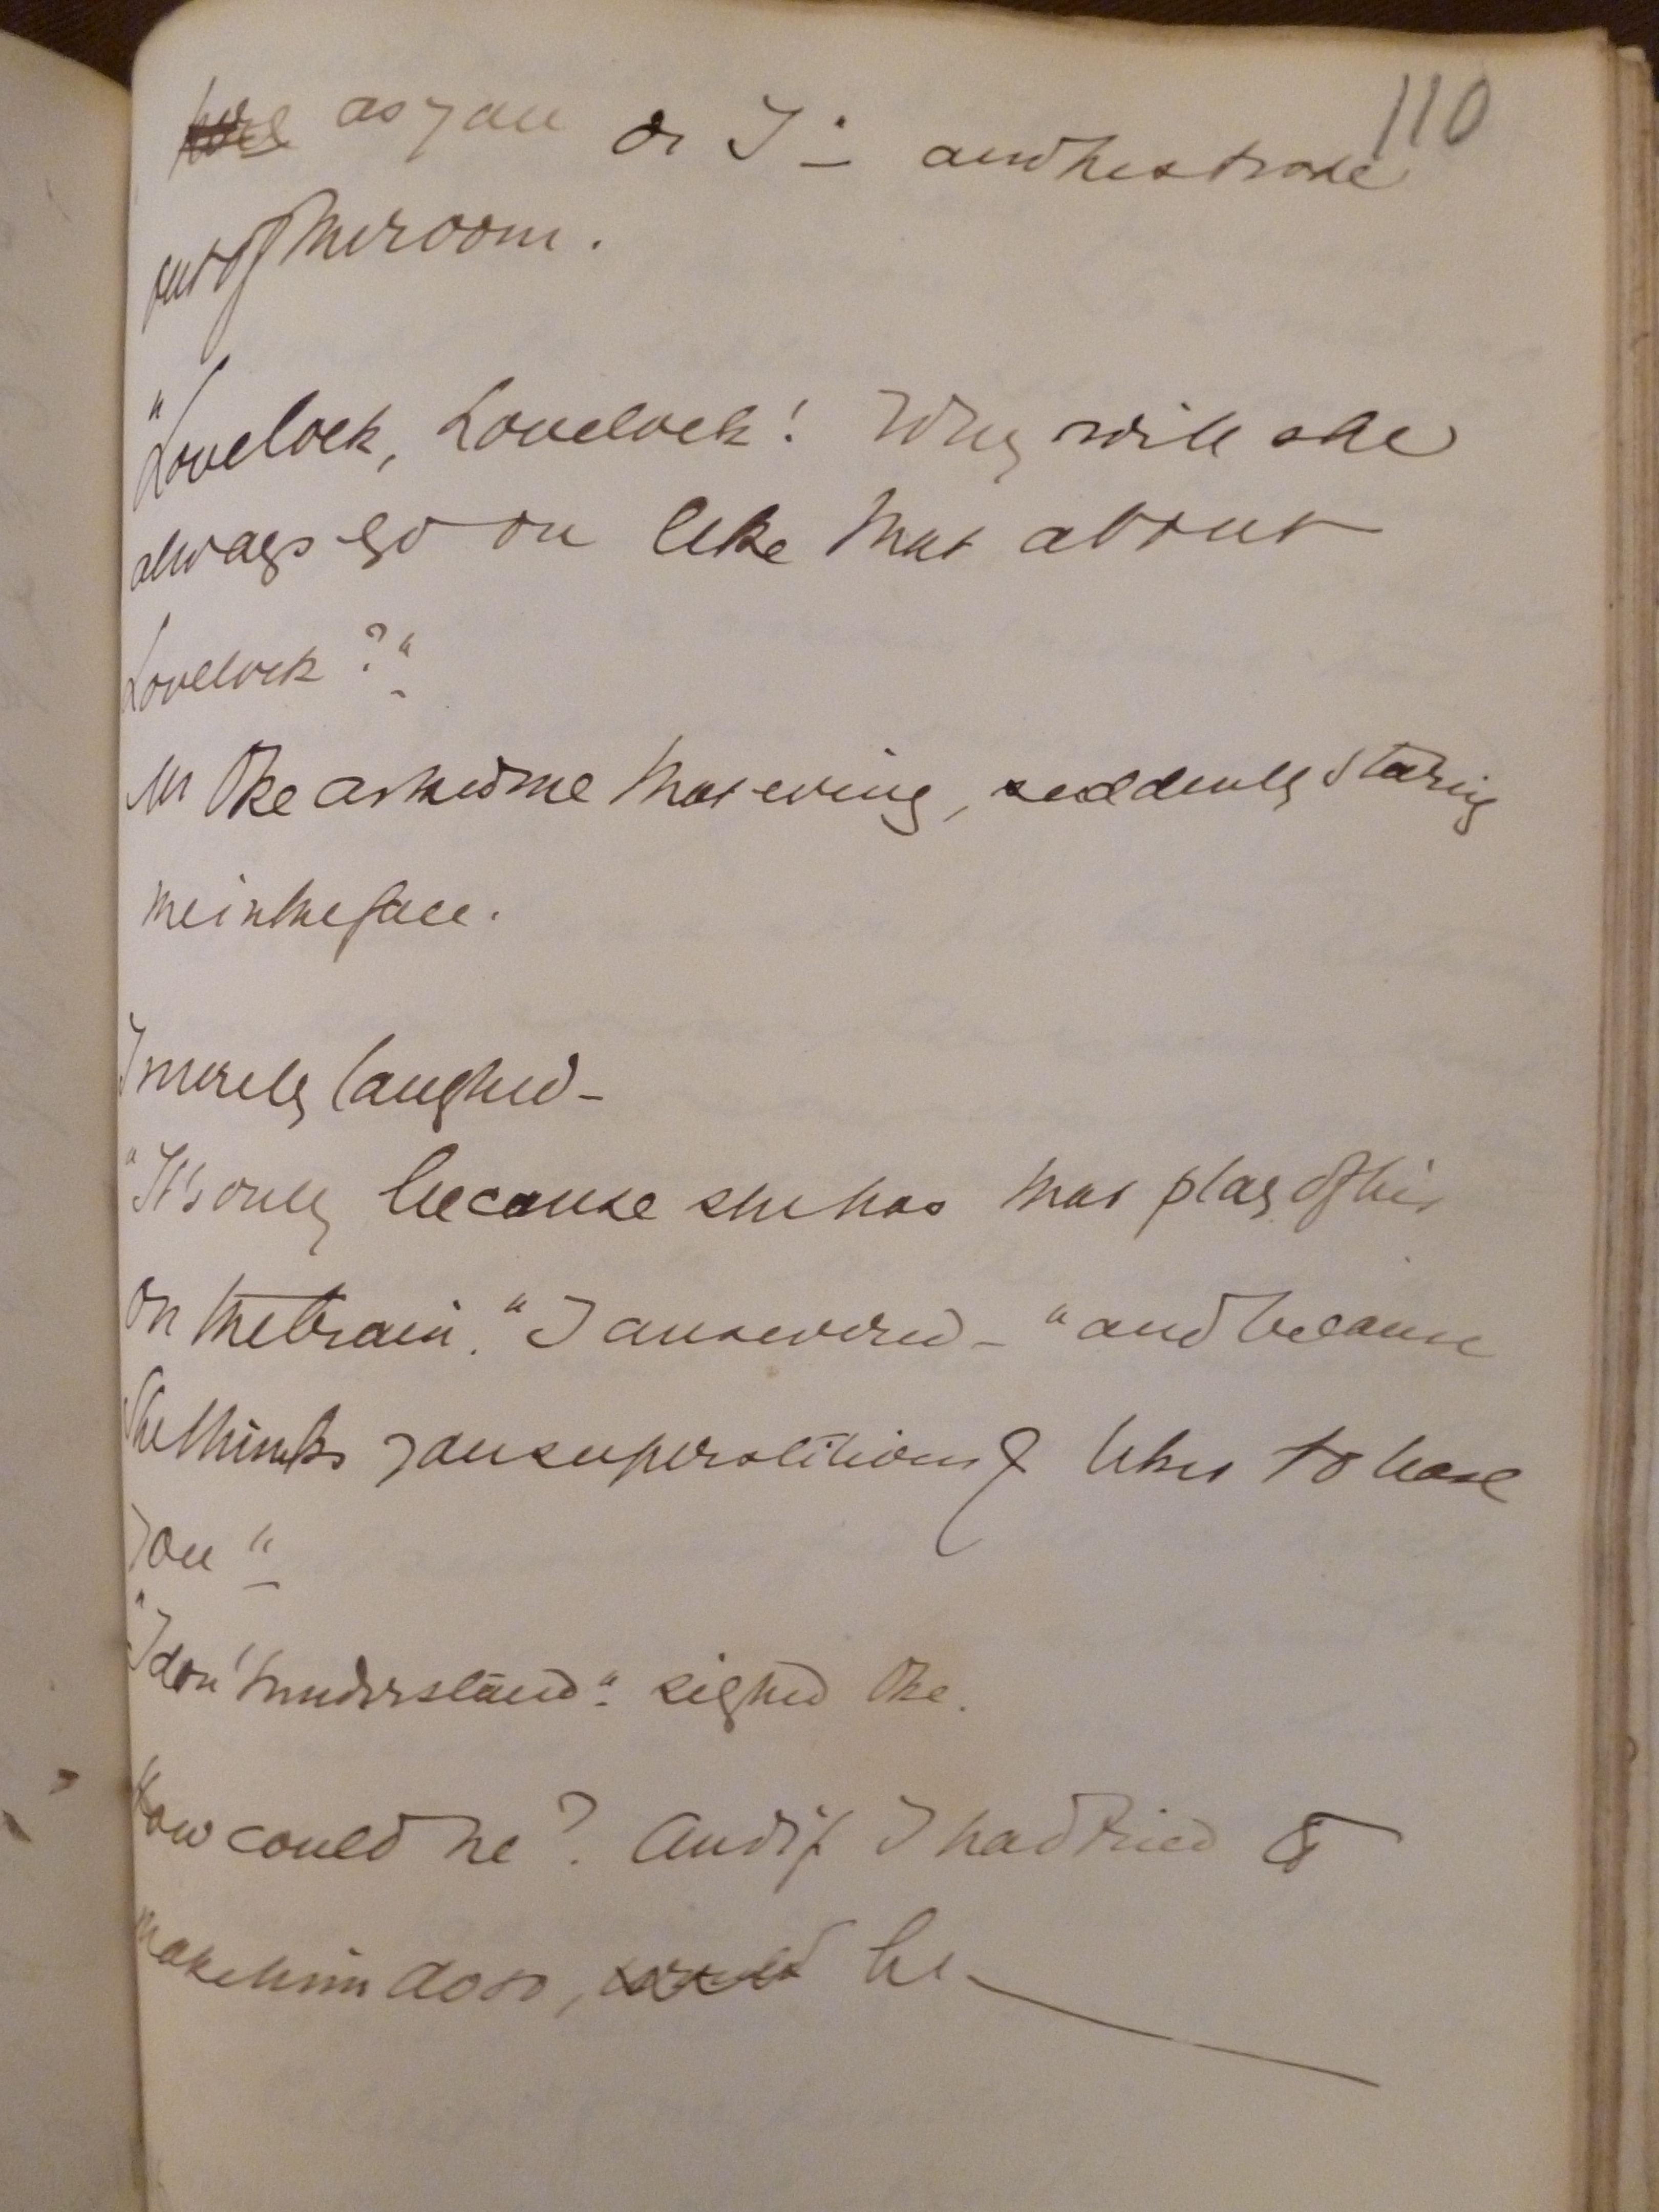 110
here as you or I" — and he strode
out of the room.
"Lovelock, Lovelock! Why will she
always go on like that about
Lovelock?"
Mr Oke asked me that evening, suddenly staring
me in the face.
I merely laughed —
"It's only because she has that play of his
on the brain." I answered — "and because
She thinks you superstitious & likes to tease
you"
"I don't understand." sighed Oke.
How could he? And if I had tried to
make him do so, would he